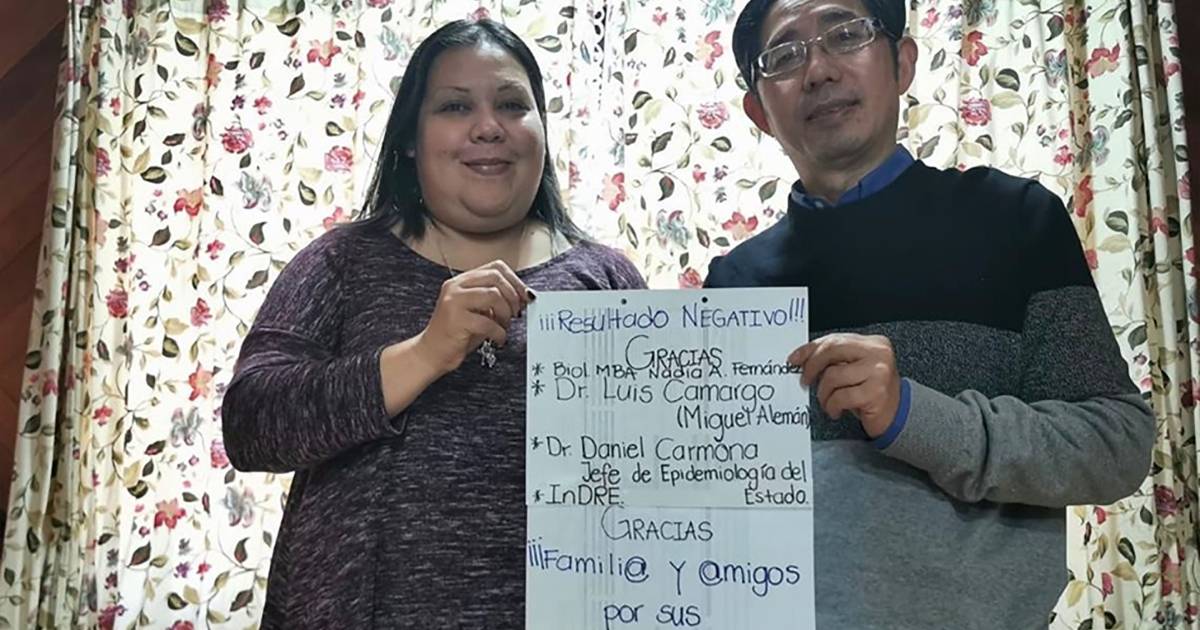 ¡¡¡Resultado NEGATIVO!!!
GRACIAS
* Biol. MBA Nadia A. Fernández
* Dr. Luis Camargo
(Miguel Alemán)
* Dr. Daniel Carmona
Jefe de Epidemiología del
* InDRE. Estado.
GRACIAS
¡¡¡Famili@ y @migos
por sus